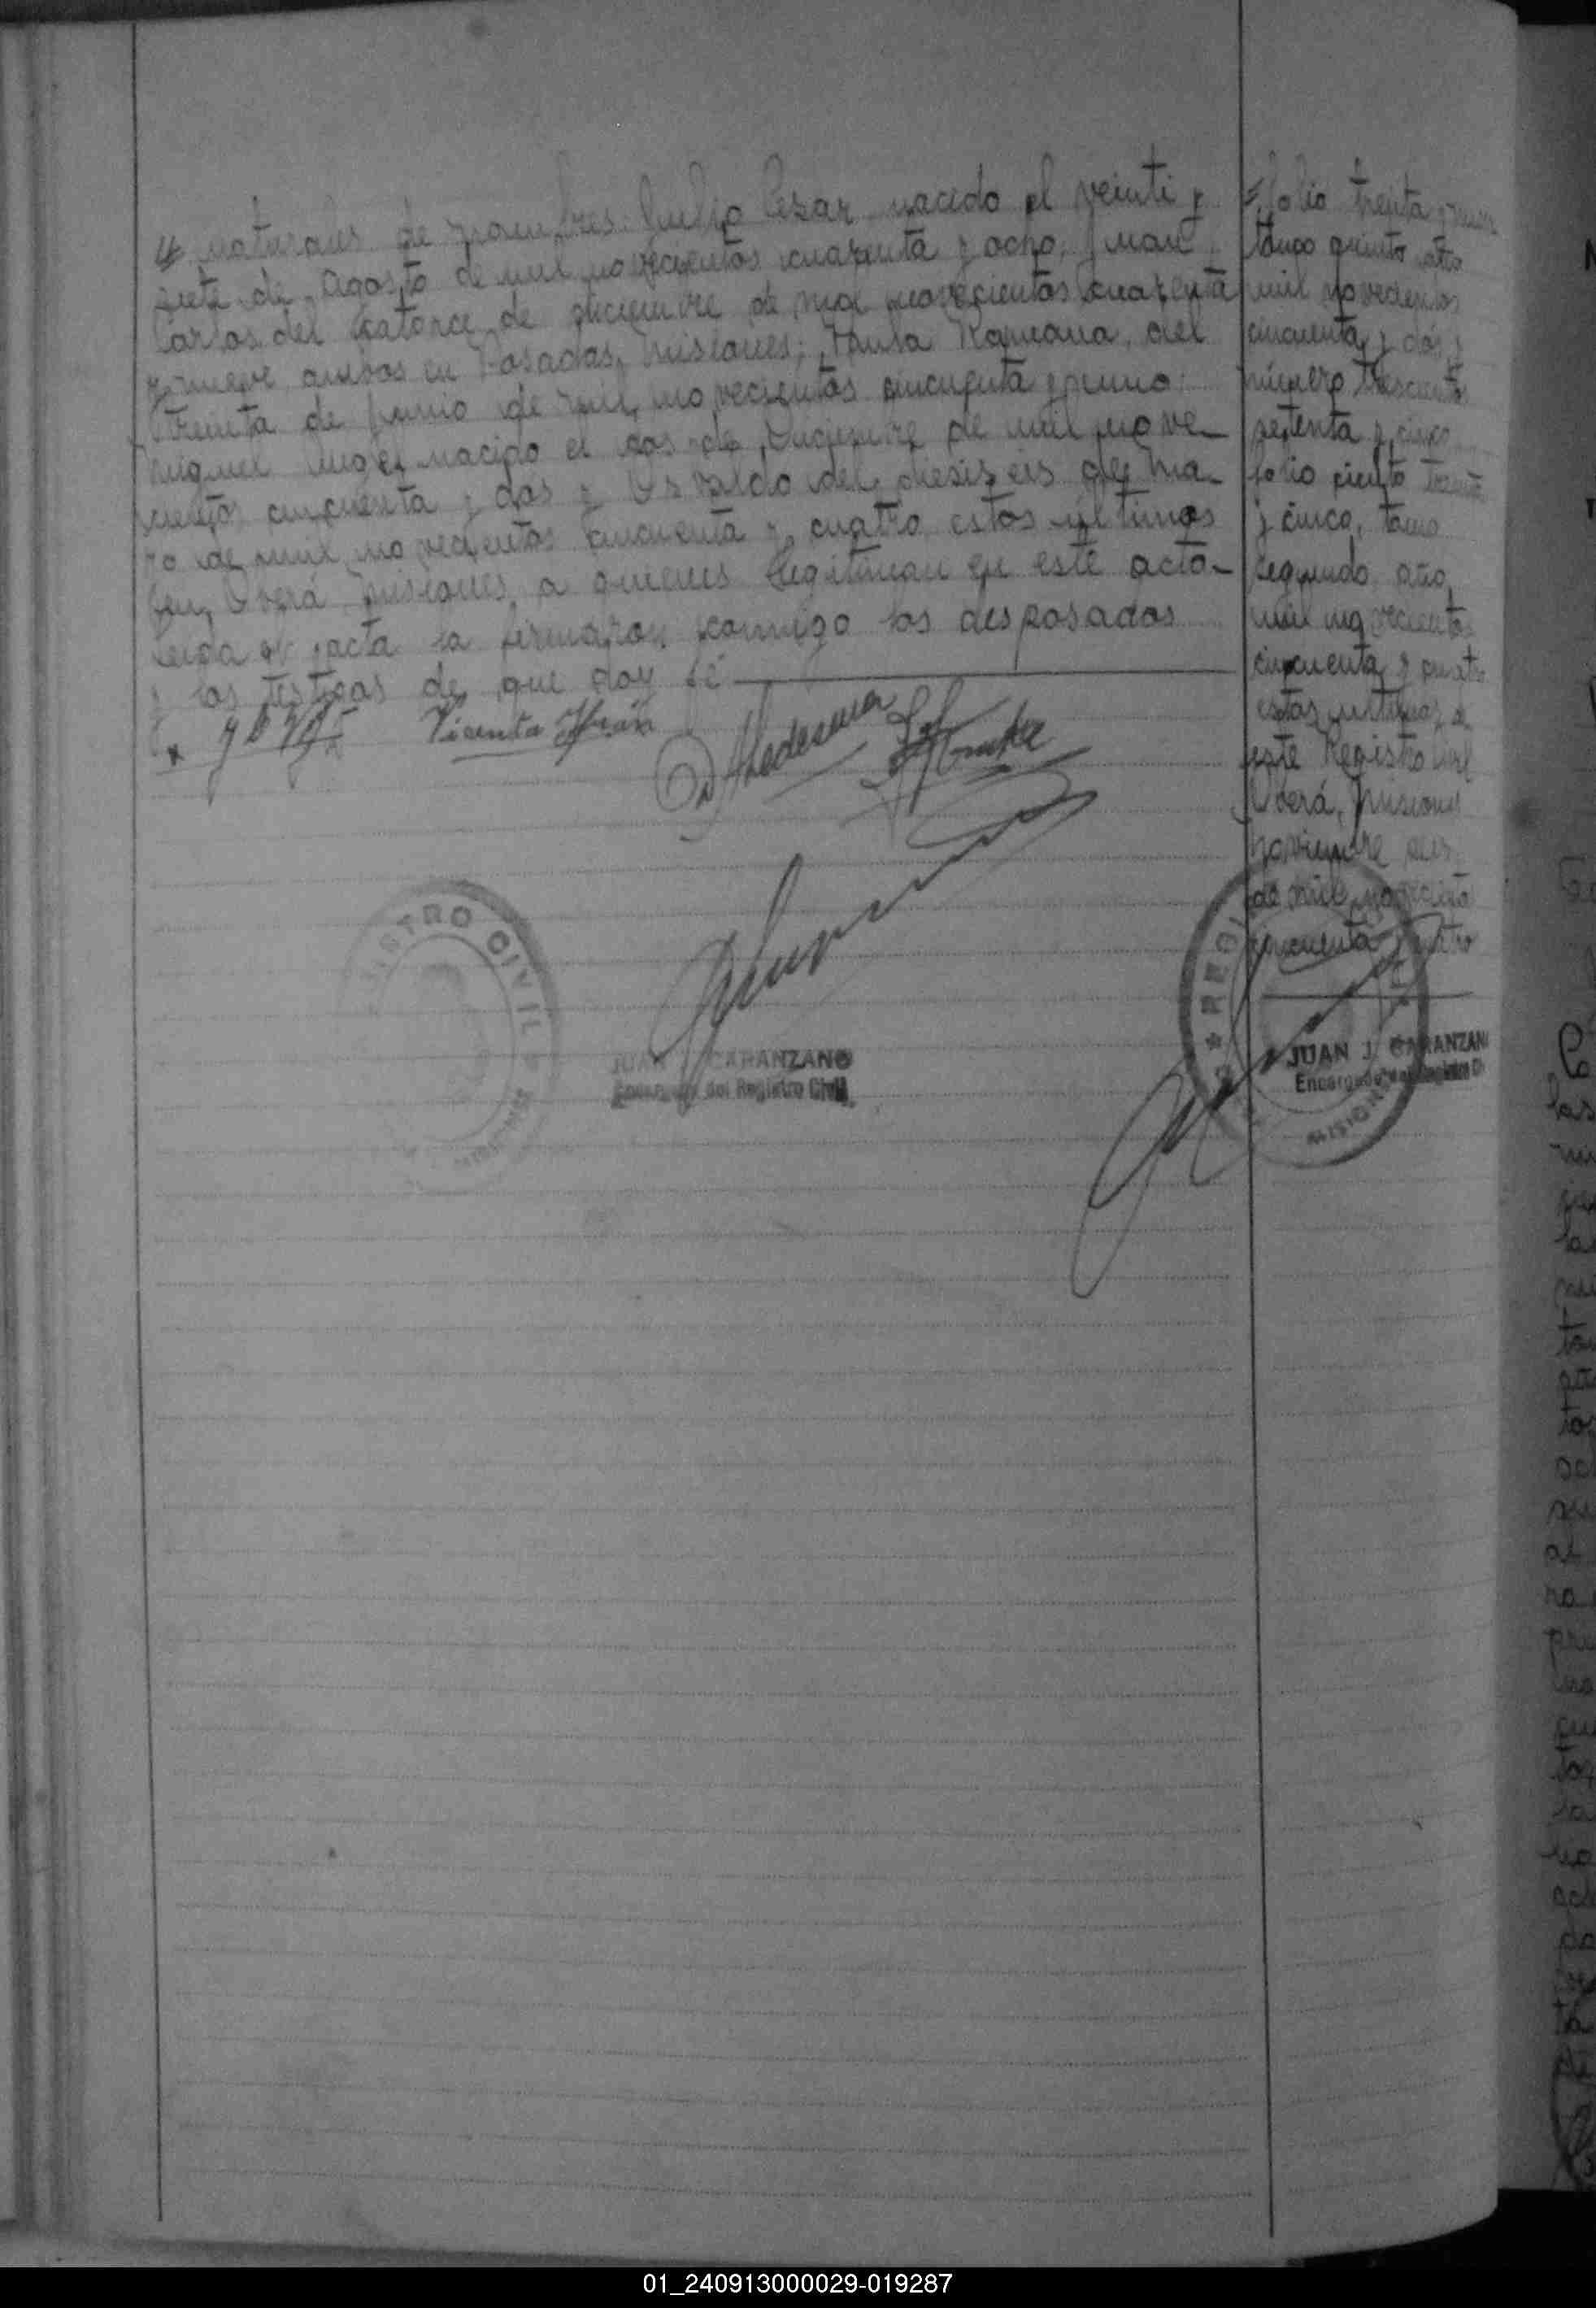 naturales de nombres: Julio Cesar nacido el veinti y
siete de Agosto de mil novecientos cuarenta y ocho; Juan
Carlos del catorce de diciembre de mil novecientos cuarenta
y nueve ambos en Posadas, Misiones; Paula Romana, del
treinta de Junio de mil novecientos cincuenta y uno;
Miguel Angel nacido el dos de Diciembre de mil nove-
cientos cincuenta y dos y Osvaldo del diesiseis de
ro de mil novecientos cincuenta y cuatro estos ultimos
en Oberá Misiones a quienes legitiman en este acto-
Leida el acta la firmaron conmigo los desposados
y los testigos de que doy fé
Vicenta
Ledesma
REGISTRO CIVIL
MISIONES
JUAN J. CARANZANO
Encargado del Registro Civil
folio treinta y
tomo quinto año
mil novecientos
cincuenta y dos y
número trescientos
setenta y cinco
folio ciento treinta
y cinco, tomo
segundo, año,
mil novecientos
cincuenta y cuatro
estos ultimos de
este Registro Civil
Oberá, Misiones
noviembre
de mil novecientos
cincuenta y cuatro
JUAN J. CARANZANO
Encargado del Registro Ci
MISIONES
01_240913000029-019287